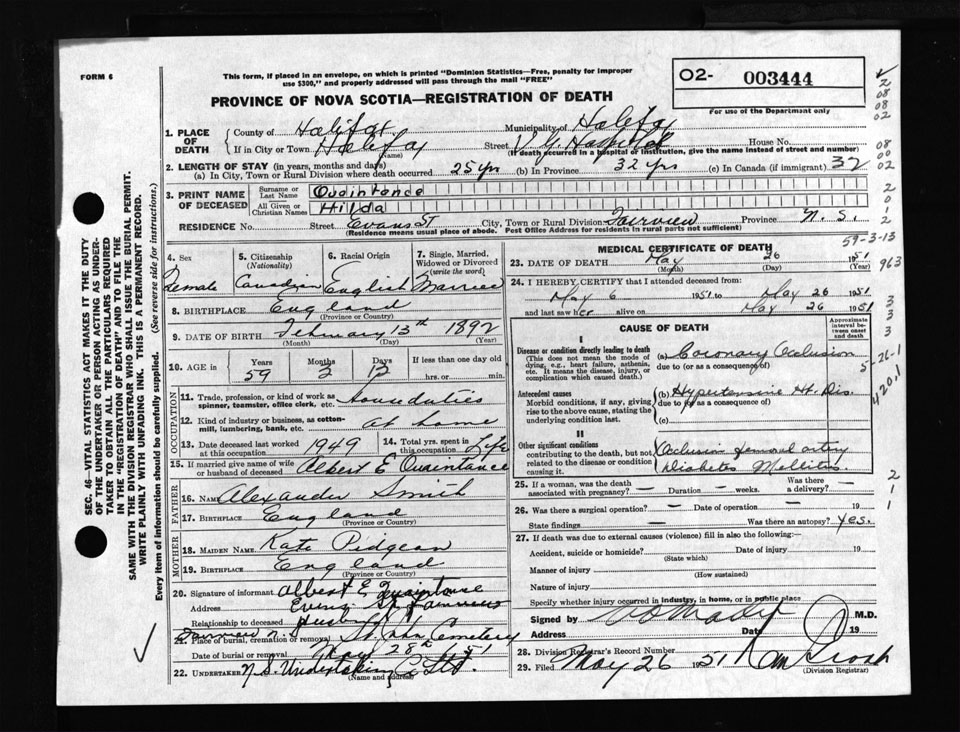 FORM 6
This form, if placed in an envelope, on which is printed "Dominion Statistics—Free, penalty for improper
use $300," and properly addressed will pass through the mail "FREE"
O2- 003444
PROVINCE OF NOVA SCOTIA—REGISTRATION OF DEATH
For use of the Department only
1. PLACE OF DEATH { County of Halifax Municipality of Halifax
If in City or Town Halifax (Name) Street V. G. Hospital House No.
(If death occurred in a hospital or institution, give the name instead of street and number)
2. LENGTH OF STAY (in years, months and days)
(a) In City, Town or Rural Division where death occurred 25 yrs (b) In Province 32 yrs (c) In Canada (if immigrant) 32
3. PRINT NAME OF DECEASED { Surname or Last Name Quaintance
All Given or Christian Names Hilda
RESIDENCE No. Street Evans St City, Town or Rural Division Fairview Province N. S.
(Residence means usual place of abode. Post Office Address for residents in rural parts not sufficient)
4. Sex Female
5. Citizenship (Nationality) Canadian
6. Racial Origin English
7. Single, Married, Widowed or Divorced (write the word) Married
8. BIRTHPLACE England
(Province or Country)
9. DATE OF BIRTH February 13th 1892
(Month) (Day) (Year)
10. AGE in { Years 59 Months 2 Days 12 If less than one day old
hrs. or min.
OCCUPATION
11. Trade, profession, or kind of work as spinner, teamster, office clerk, etc. Houseduties
12. Kind of industry or business, as cotton-mill, lumbering, bank, etc. at home
13. Date deceased last worked at this occupation 1949
14. Total yrs. spent in this occupation Life
15. If married give name of wife or husband of deceased Albert E Quaintance
FATHER
16. NAME Alexander Smith
17. BIRTHPLACE England
(Province or Country)
MOTHER
18. MAIDEN NAME Kate Pidgeon
19. BIRTHPLACE England
(Province or Country)
20. Signature of informant Albert E Quaintance
Address St Fairview
Relationship to deceased Husband
Fairview N. S.
21. Place of burial, cremation or removal St Johns Cemetery
Date of burial or removal May 28th 51
22. UNDERTAKER N. S. Undertaking Co Ltd.
(Name and address)
MEDICAL CERTIFICATE OF DEATH
23. DATE OF DEATH May 26 1951
(Month) (Day) (Year)
24. I HEREBY CERTIFY that I attended deceased from:
May 6 1951 to May 26 1951
and last saw her alive on May 26 1951
CAUSE OF DEATH
Approximate interval between onset and death
I
Disease or condition directly leading to death
(This does not mean the mode of dying, e.g., heart failure, asthenia, etc. It means the disease, injury, or complication which caused death.)
(a) Coronary Occlusion
due to (or as a consequence of)
Antecedent causes
Morbid conditions, if any, giving rise to the above cause, stating the underlying condition last.
(b) Hypertensive Ht. Dis.
due to (or as a consequence of)
(c)
II
Other significant conditions
contributing to the death, but not related to the disease or condition causing it.
Occlusion femoral artery
Diabetes Mellitus
25. If a woman, was the death associated with pregnancy? — Duration — weeks. Was there a delivery? —
26. Was there a surgical operation? — Date of operation —
State findings — Was there an autopsy? Yes.
27. If death was due to external causes (violence) fill in also the following:—
Accident, suicide or homicide? Date of injury 19
(State which)
Manner of injury
(How sustained)
Nature of injury
Specify whether injury occurred in industry, in home, or in public place
Signed by M.D.
Address Date 19
28. Division Registrar's Record Number
29. Filed May 26 1951
(Division Registrar)
SEC. 46—VITAL STATISTICS ACT MAKES IT THE DUTY
OF THE UNDERTAKER OR PERSON ACTING AS UNDER-
TAKER TO OBTAIN ALL THE PARTICULARS REQUIRED
IN THE "REGISTRATION OF DEATH" AND TO FILE THE
SAME WITH THE DIVISION REGISTRAR WHO SHALL ISSUE THE BURIAL PERMIT.
WRITE PLAINLY WITH UNFADING INK. THIS IS A PERMANENT RECORD.
Every item of information should be carefully supplied. (See reverse side for instructions.)
2
08
08
02
08
00
02
2
0
1
2
59-3-13
963
3
3
3
26-1
5
420.1
2
1